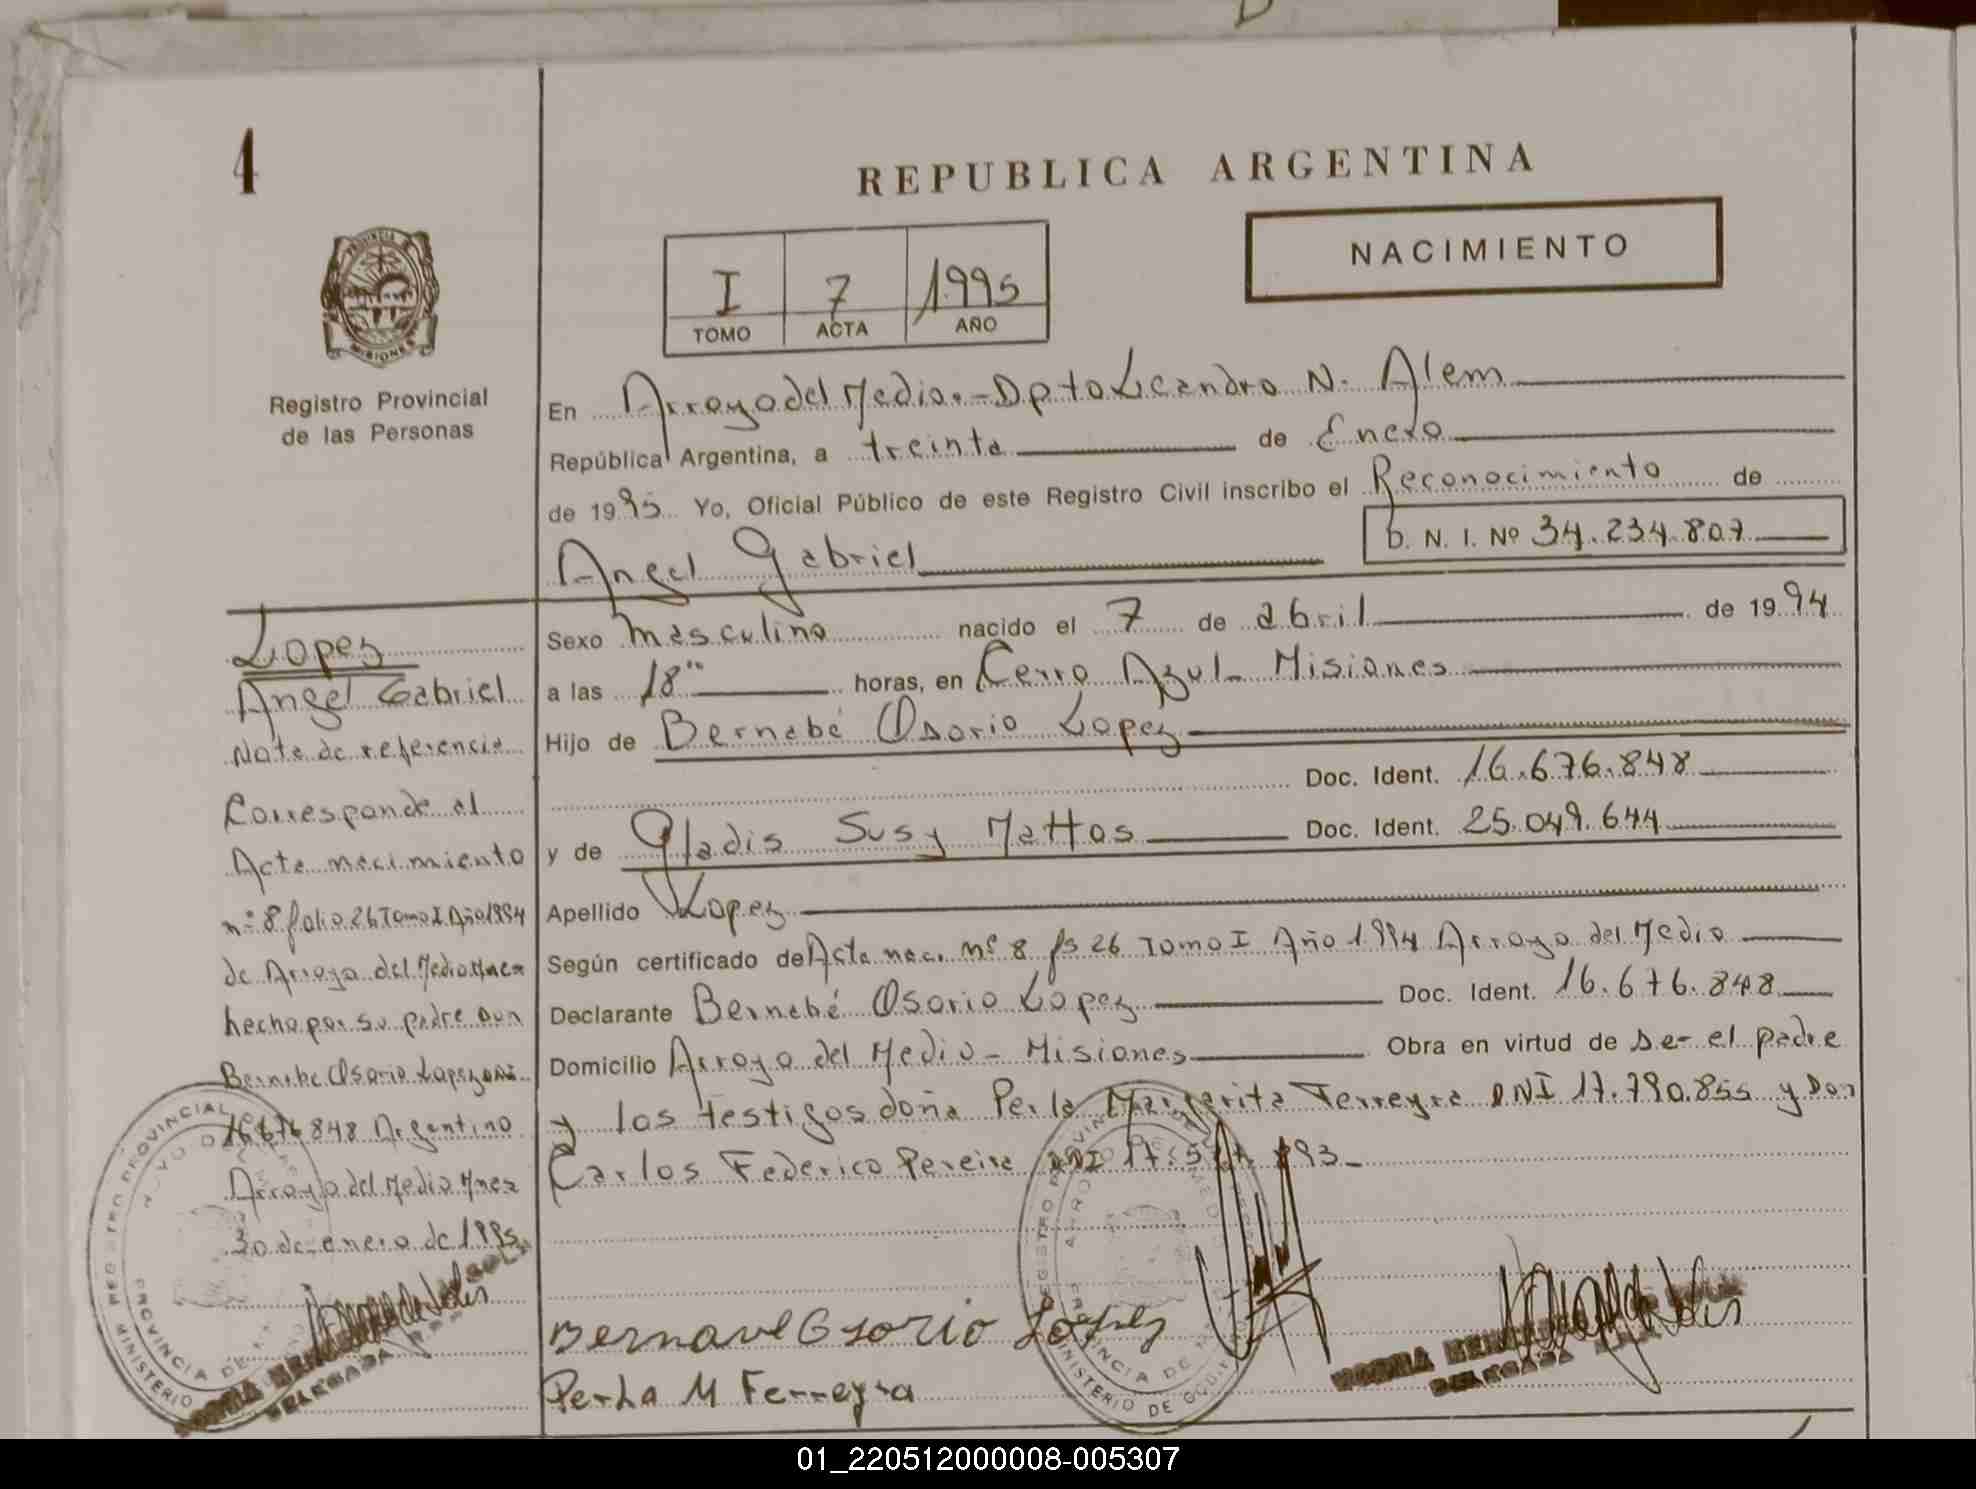 4
REPUBLICA ARGENTINA
NACIMIENTO
I 7 1995
TOMO ACTA AÑO
PROVINCIA DE
MISIONES
Registro Provincial
de las Personas
En Arroyo del Medio.- Dpto Leandro N. Alem
República Argentina, a treinta de Enero
de 1995 Yo, Oficial Público de este Registro Civil inscribo el Reconocimiento de
Angel Gabriel
D. N. I. Nº 34.234.807
Sexo masculino nacido el 7 de abril de 1994
a las 18 horas, en Cerro Azul Misiones
Hijo de Bernabé Osorio Lopez
Doc. Ident. 16.676.848
y de Gladis Susy Mattos Doc. Ident. 25.049.644
Apellido Lopez
Según certificado de Acta nac. nº 8 fs 26 Tomo I Año 1994 Arroyo del Medio
Declarante Bernabé Osorio Lopez Doc. Ident. 16.676.848
Domicilio Arroyo del Medio - Misiones Obra en virtud de ser el padre
y los testigos doña Perla Margarita Ferreyra DNI 17.790.855 y Don
Carlos Federico Pereira DNI 17.5 893.-
Bernave Osorio Lopez
Perla M Ferreyra
Lopez
Angel Gabriel
Nota de referencia
Corresponde al
Acta nacimiento
nº 8 folio 26 Tomo I Año 1994
de Arroyo del Medio Mnes
hecho por su padre Don
Bernabe Osorio Lopez DNI
16676848 Argentino
Arroyo del Medio Mnes
30 de enero de 1995
REGISTRO PROVINCIAL
MINISTERIO
PROVINCIA DE
DELEGADA
REGISTRO PROVINCIAL DE
MINISTERIO DE GOBIERNO
ARROYO DEL MEDIO
PROVINCIA DE
NORMA
DELEGADA
01_220512000008-005307